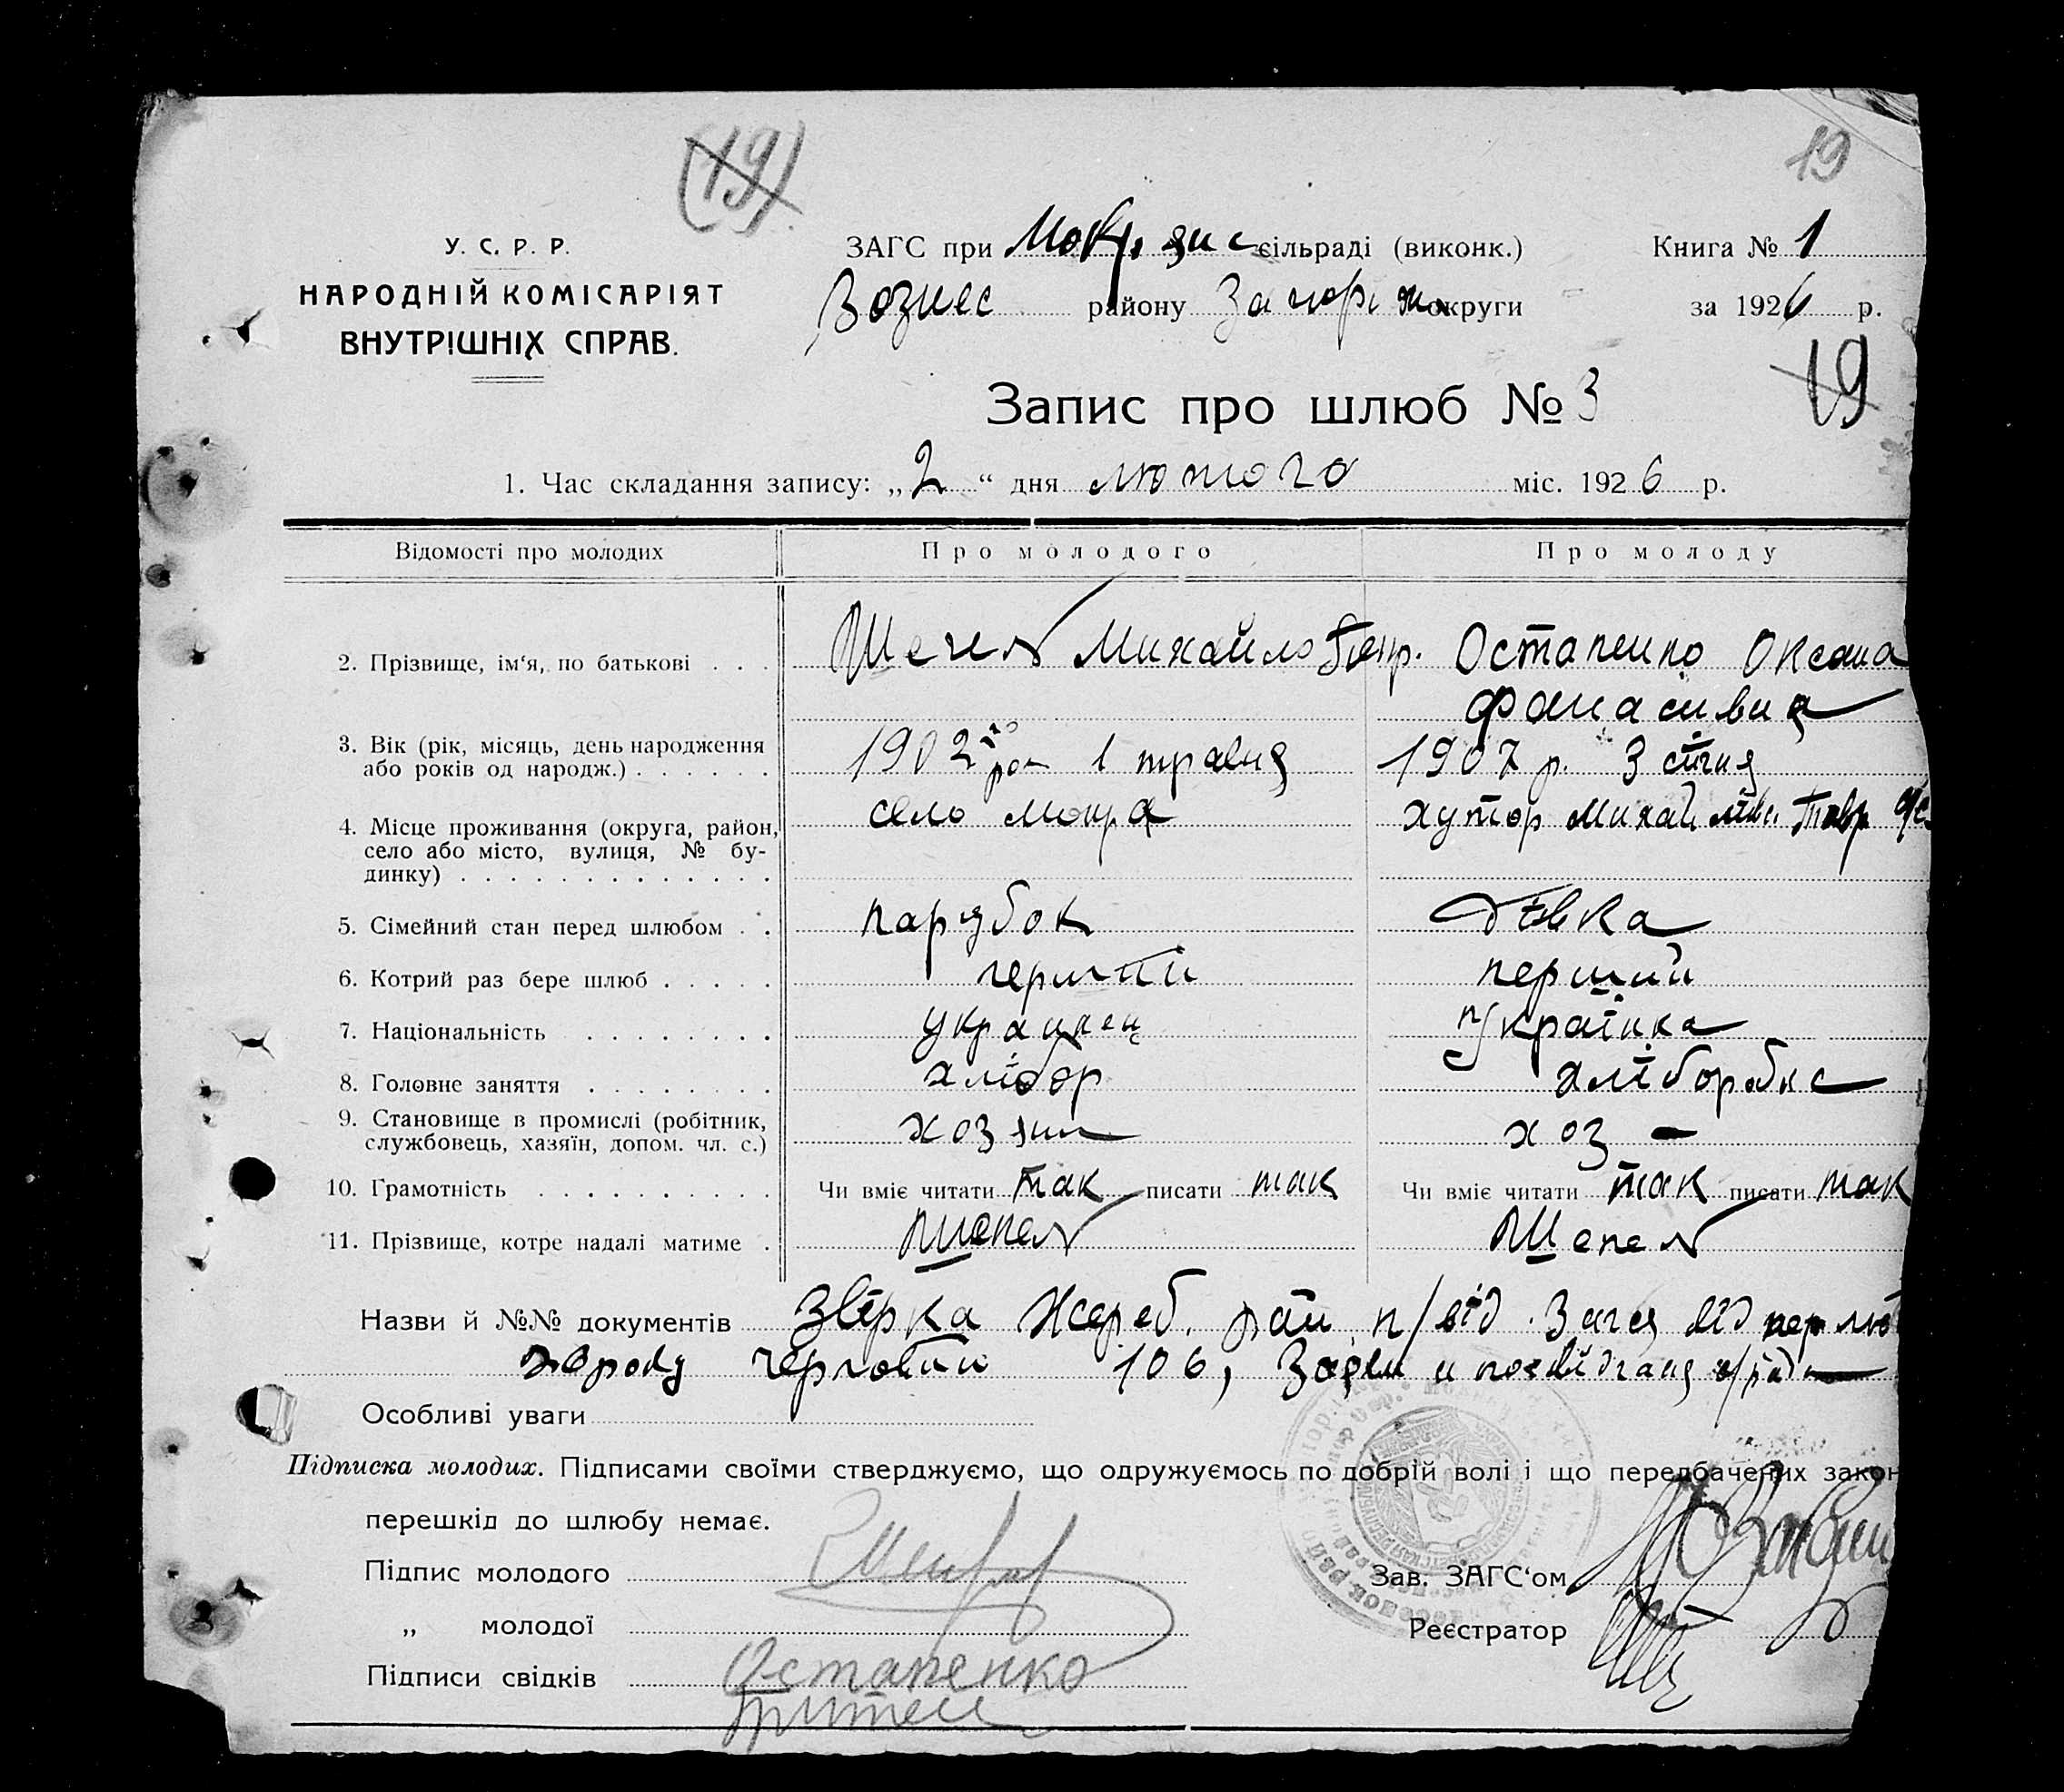 (19)
19
У. С. Р. Р.
НАРОДНІЙ КОМІСАРІЯТ
ВНУТРІШНІХ СПРАВ.
ЗАГС при сільраді (виконк.)
Книга № 1
Вознес району Запоріж округи
за 1926 р.
19
Запис про шлюб № 3
1. Час складання запису: „2“ дня лютого міс. 1926 р.
Відомості про молодих
Про молодого
Про молоду
2. Прізвище, ім‘я, по батькові . . .
Шепель Михайло Петр.
Остапенко Оксана
Фанасівна
3. Вік (рік, місяць, день народження
або років од народж.) . . . . . .
1902 рок 1 травня
1907 р. 3 січня
4. Місце проживання (округа, район,
село або місто, вулиця, № бу-
динку) . . . . . . . . . . . . .
село Мокра
хутор Михайлівс.
5. Сімейний стан перед шлюбом . .
парубок
дівка
6. Котрий раз бере шлюб . . . . .
перший
перший
7. Національність . . . . . . . .
українец
Українка
8. Головне заняття . . . . . . . .
хлібор
хліборобка
9. Становище в промислі (робітник,
службовець, хазяїн, допом. чл. с.)
хозяин
хоз —
10. Грамотність . . . . . . . . . .
Чи вміє читати так писати так
Чи вміє читати так писати так
11. Прізвище, котре надалі матиме .
Шепель
Шепель
Назви й №№ документів Жереб. рай. п/від. Загса від
106,
Особливі уваги
Підписка молодих. Підписами своїми стверджуємо, що одружуємось по добрій волі і що передбачених закон
перешкід до шлюбу немає.
Підпис молодого
Зав. ЗАГС‘ом
„ молодої
Реєстратор
Підписи свідків
Остапенко